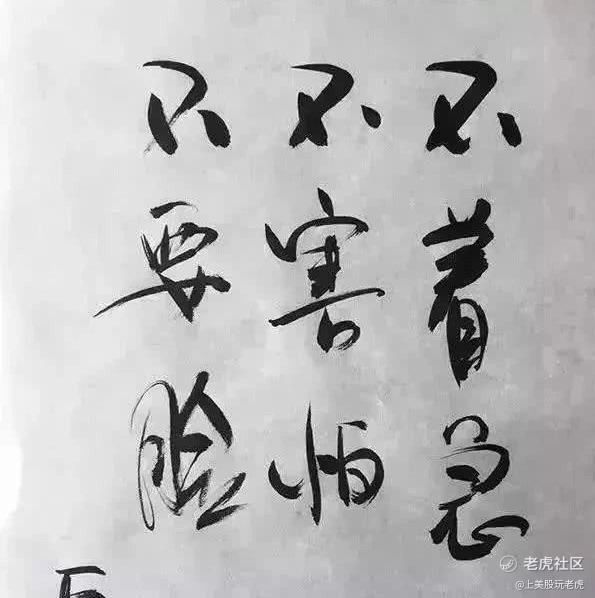 不着急
不害怕
不要脸
老虎社区
@上美股玩老虎